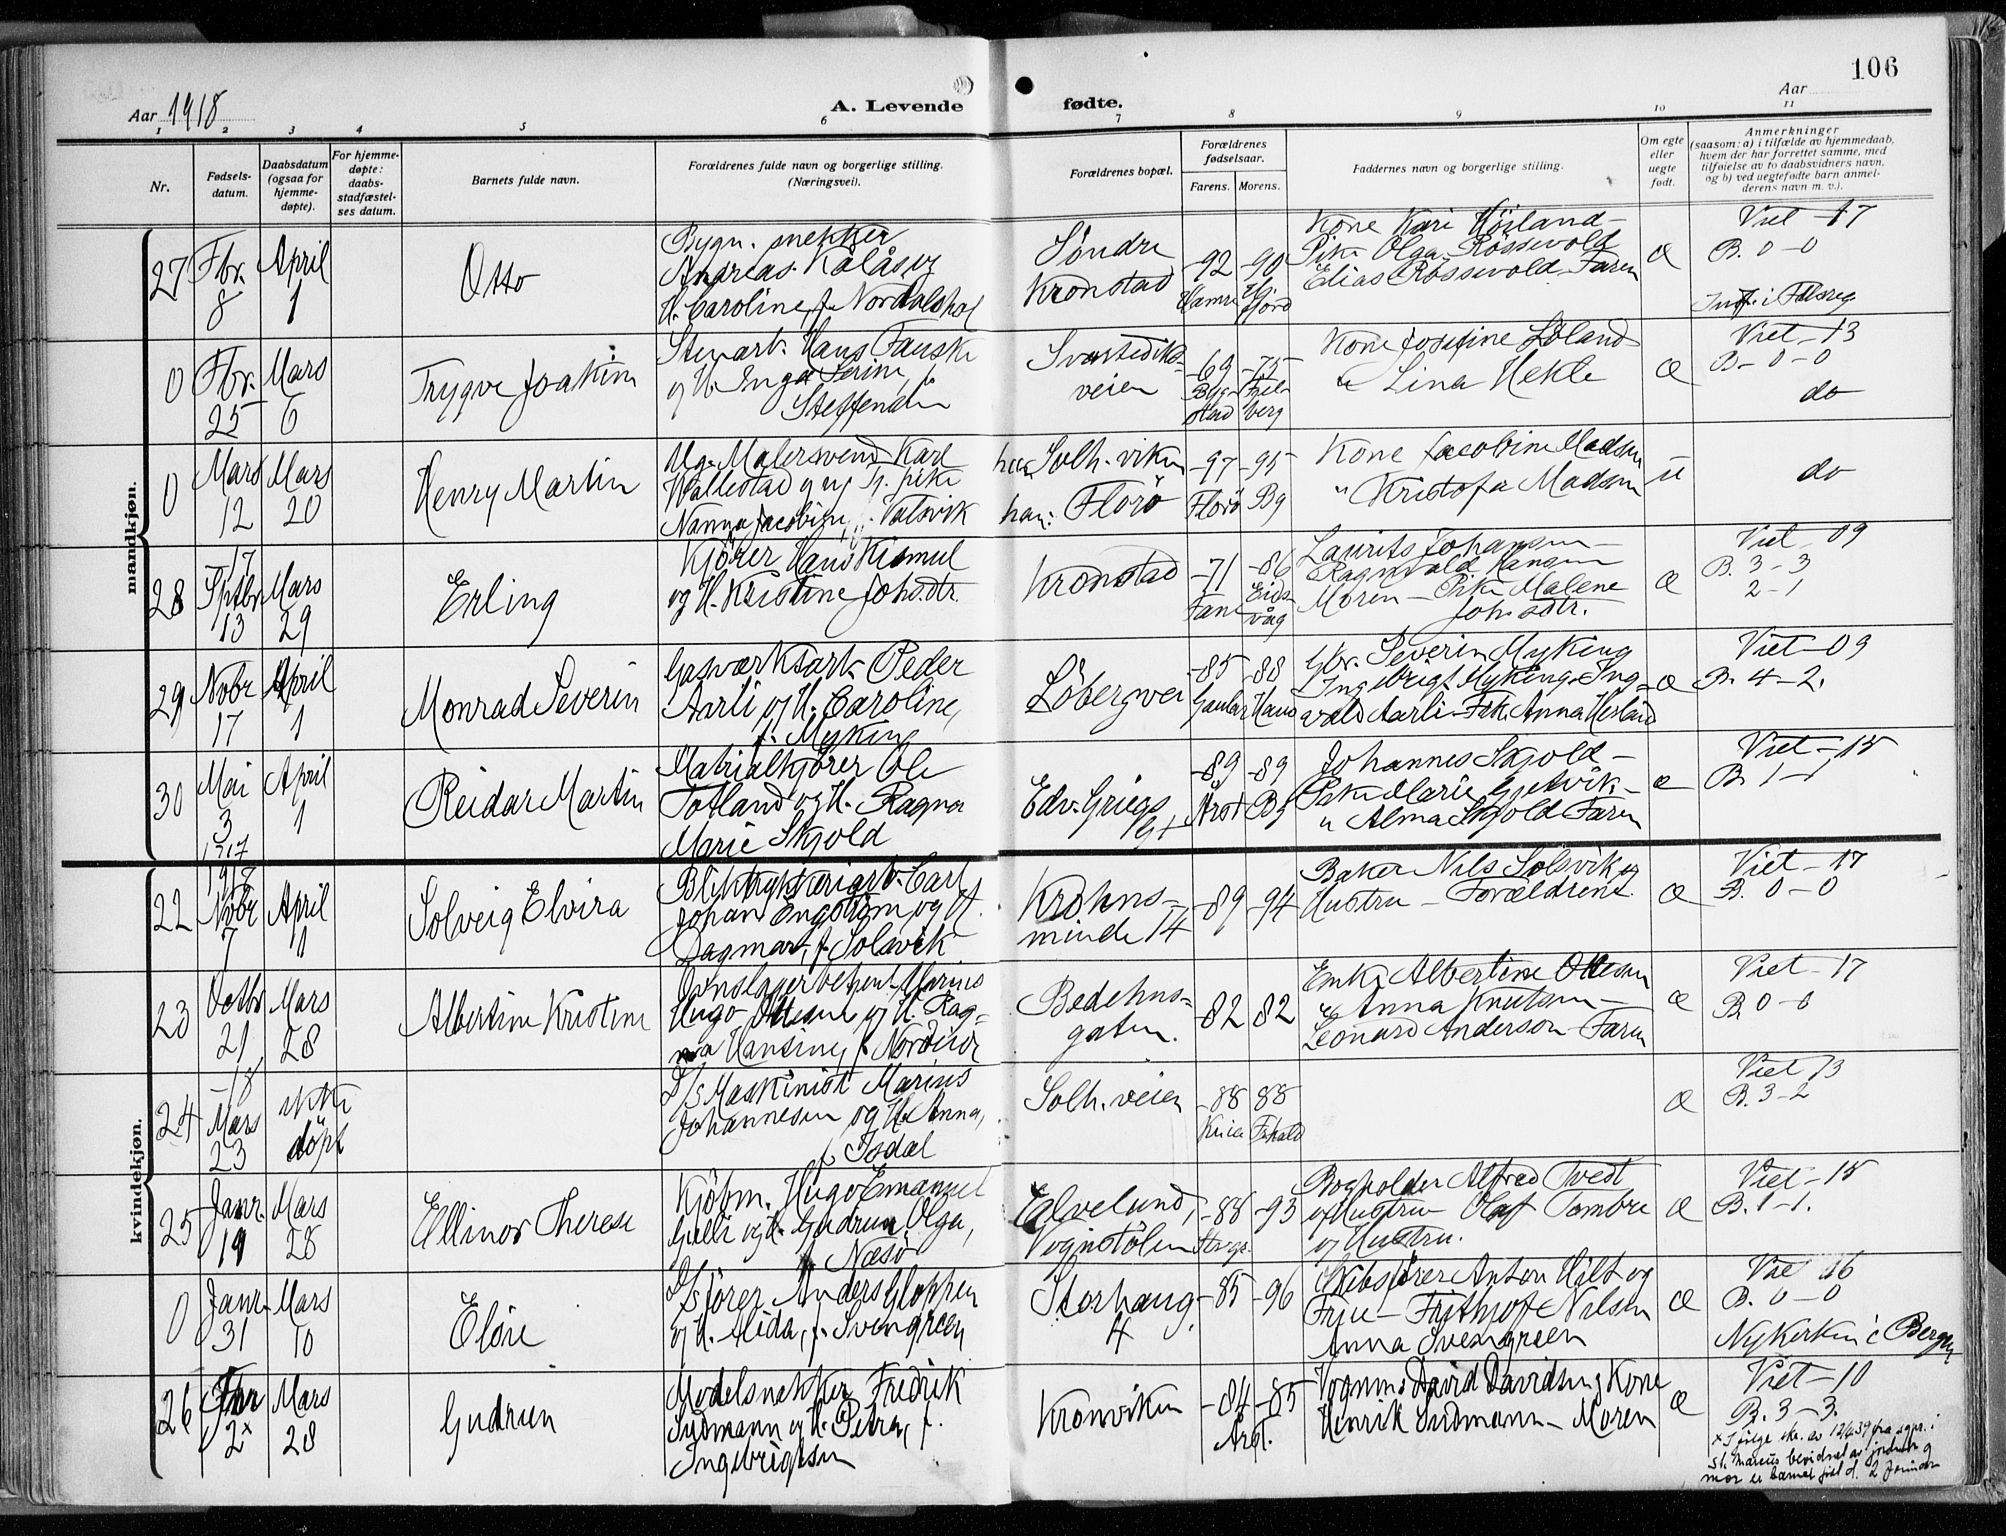 106
Aar 1918
A. Levende fødte.
Aar
1 2 3 4 5 6 7 8 9 10 11
Nr.
Fødsels-
datum.
Daabsdatum
(ogsaa for
hjemme-
døpte).
For hjemme-
døpte:
daabs-
stadfæstel-
ses datum.
Barnets fulde navn.
Forældrenes fulde navn og borgerlige stilling.
(Næringsvei).
Forældrenes bopæl.
Forældrenes
fødselsaar.
Farens. Morens.
Faddernes navn og borgerlige stilling.
Om egte
eller
uegte
født.
Anmerkninger
(saasom: a) i tilfælde av hjemmedaab,
hvem der har forrettet samme, med
tilføielse av to daabsvidners navn,
og b) ved uegtefødte barn anmel-
derens navn m. v.).
mandkjøn.
27
Fbr.
8
April
1
Otto
Bygn. snekker
Andreas Kalås og
H. Caroline, f. Nordalshol
Søndre
Kronstad
-92
Hamre
-90
Kone Kari Höiland -
Pike Olga Rössevold
Elias Rössevold - Faren
æ
Viet -17
B. 0-0
0
Fbr.
25
Mars
6
Trygve Joakim
Stuart. Hans Fauske
og H. Inga Serine, f.
Steffensen
veien
-69
-75
Kone Josefine Löland
" Lina Hekle
æ
Viet -13
B- 0-0
do
0
Mars
12
Mars
20
Henry Martin
Ug. Malersvend Karl
Hallestad og ug. tj. pike
Nanna Jacobine, f. Vatsvik
hun Solh. viken
han: Florö
-97
Florö
-95
Bg
Kone Jacobine Madsen
" Kristofa Madsen
u
do
28
-17
Sptbr
13
Mars
29
Erling
Kjörer Hans Kismul
og H. Kristine Johs.dtr.
Kronstad
-71
Fane
-86
Eids
våg
Laurits Johansen -
Ragnvald Hansen
Moren - Pike Malene
Joh.sdtr.
æ
Viet -09
B. 3-3
2-1
29
Novbr
17
April
1
Monrad Severin
Gasværksarb. Peder
Aarli og H. Caroline,
f. Myking
Löbergsvei
-85
Gaular
-88
Haus
Gbr. Severin Myking
Ingebrigt Myking - Ing-
vald Aarli - Frk. Anna Herland
æ
Viet -09
B. 4-2.
30
Mai
3
1917
April
1
Reidar Martin
Matrialkjörer Ole
Totland og H. Ragna
Marie Skjold
Edv. Griegs
Gt
-89
Årst
-89
Bg
Johannes Skjold -
Pike Marie Gjetvik -
" Alma Skjold Faren
æ
Viet -15
B. 1-1
kvindekjøn.
22
1917
Novbr
7
April
1
Solveig Elvira
Bliktrykkeriarb. Carl
Johan Engström og H.
Dagmar, f. Solsvik
Krohns-
minde 14
-89
-94
Baker Nils Solsvik og
Hustru - Forældrene
æ
Viet -17
B. 0-0
23
Octbr
21
Mars
28
Albertine Kristine
Hugo Ottesen og H. Rag-
na Hansine, f.
Bedehus-
gaten.
-82
82
Enke Albertine Ottesen
" Anna Knutsen -
Leonard Anderson - Faren
æ
Viet -17
B 0-0
24
-18
Mars
23
ikke
döpt
D/s Maskinist Marius
Johannesen og H. Anna,
f. Isdal
Solh. veien
-88
88
æ
Viet 13
B. 3-2
25
Janr.
19
Mars
28
Ellinor Therese
Kjöbm. Hugo Emanuel
Gulli og H. Gudrun Olga,
f. Næsö
Elvelund,
Vognstölen
-88
-93
Bogholder Alfred Tvedt
og Hustru - Olaf Tombre
og Hustru.
æ
Viet -15
B. 1-1.
0
Janr.
31
Mars
10
Elöne
D/s förer Anders Gloppen
og H. Alida, f. Svengreen
Storhaug.
4
-85
-96
Skibsförer Anton Hilt og
Frue - Frithjof Nilsen
Anna Svengreen
æ
Viet 16
B. 0-0
Nykirken i Bergen
26
Fbr
2x
Mars
28
Gudrun
Modelsnekker Fredrik
Sudmann og H. Petra, f.
Ingebrigtsen
Kronviken
-84
-85
Årst.
Vognm. David Davidsen og Kone
Henrik Sudmann - Moren
æ
Viet -10
B. 3-3.
x I følge skr. av 12/4 39 fra sgpr. i
St. Marcus bevidnet av jordmor og
mor er barnet født d. 2 januar